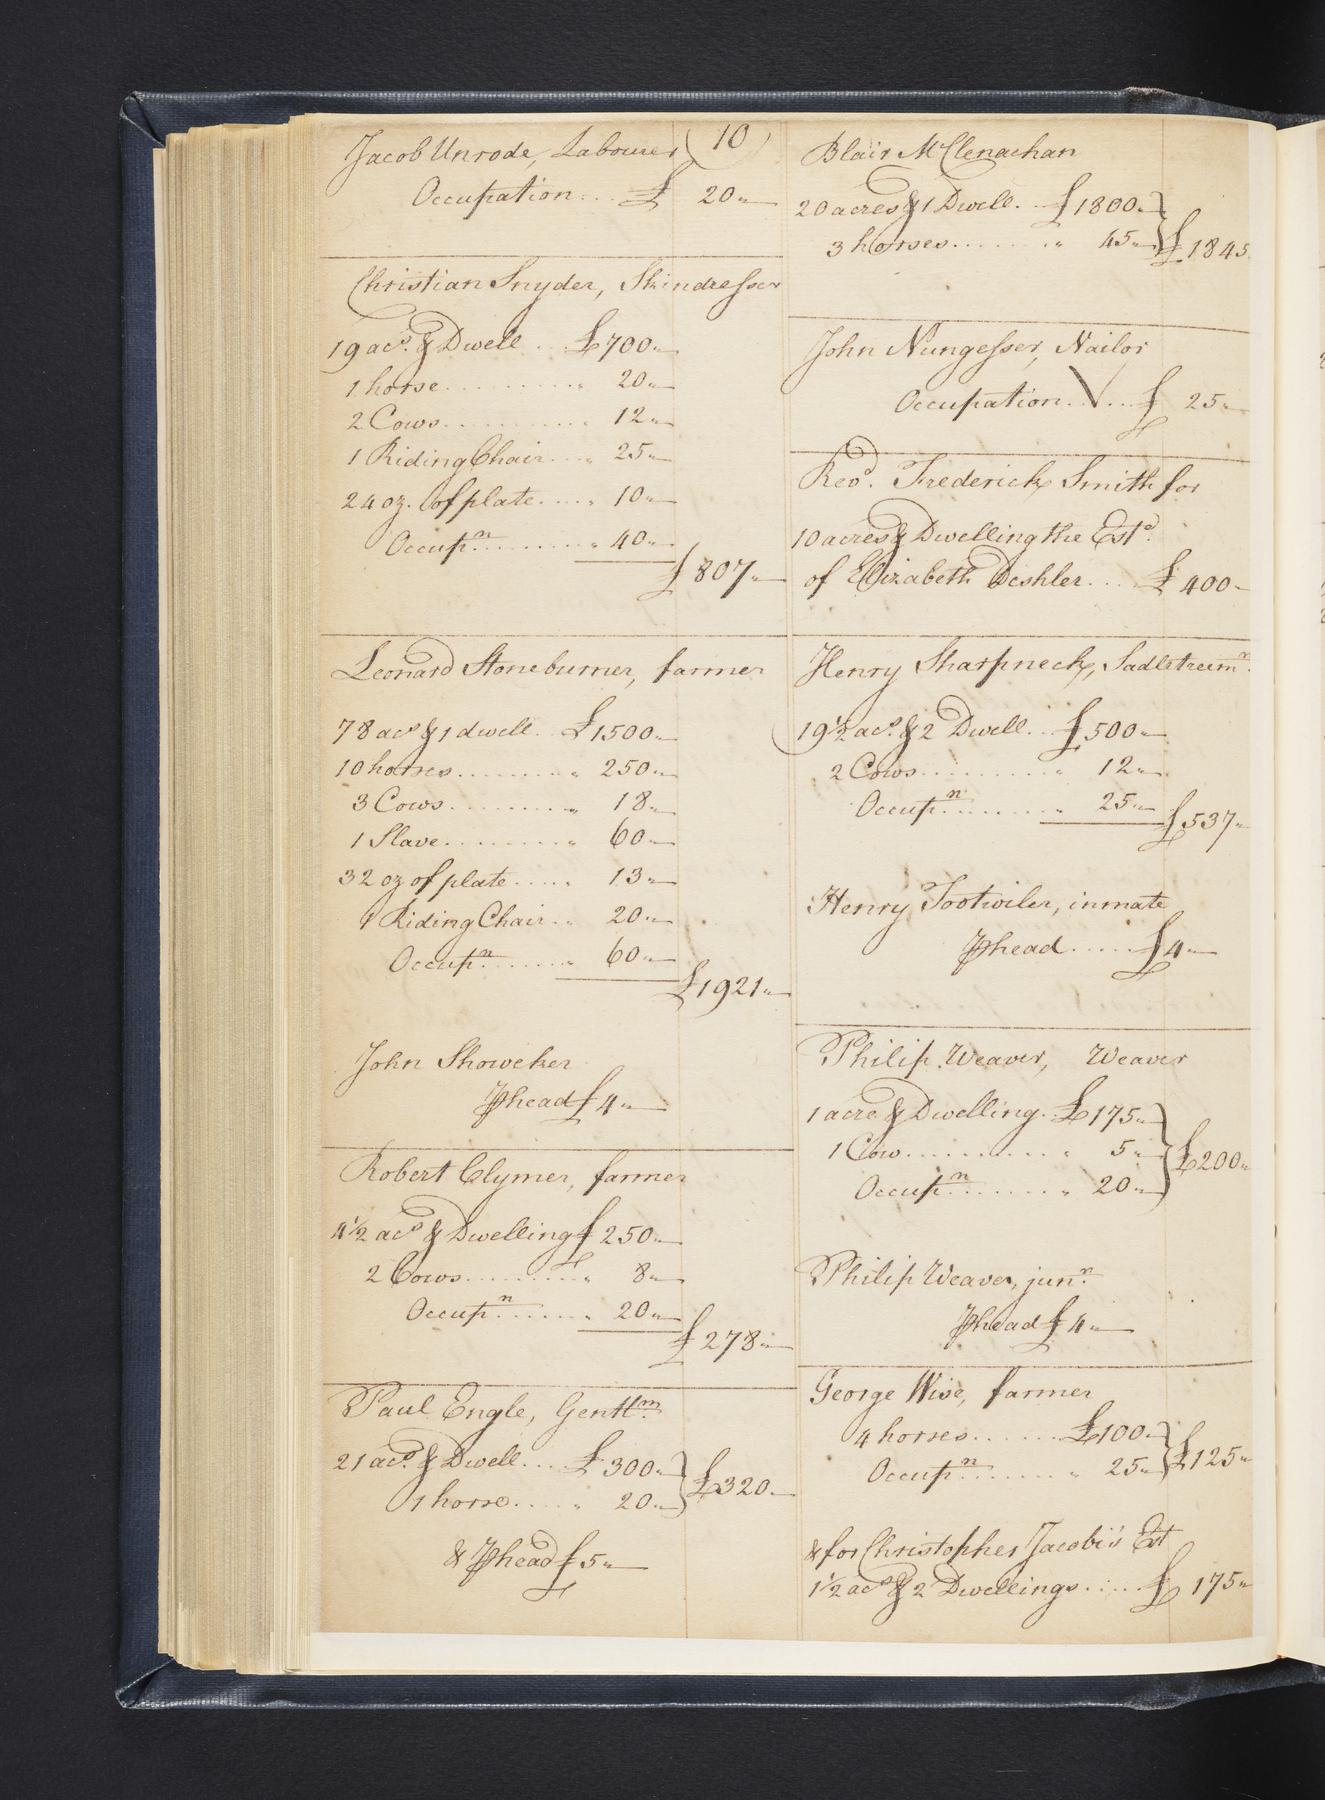 (10)
Jacob Unrode, Labourer
Occupation... £ 20"
Christian Snyder, Skindresser
19 acs. & Dwell... £700"
1 horse.......... " 20"
2 Cows.......... " 12"
1 Riding Chair.... " 25"
24 oz. of plate.... " 10"
Occupn.......... " 40"
£807"
Leonard Stoneburner, farmer
78 acs & 1 dwell.. £1500"
10 horses......... " 250"
3 Cows.......... " 18"
1 Slave.......... " 60"
32 oz of plate..... " 13"
1 Riding Chair... " 20"
Occupn....... " 60"
£1921"
John Showeker
⅌ head £4"
Robert Clymer, farmer
4½ acs & Dwelling £250"
2 Cows.......... " 8"
Occupn....... " 20"
£278"
Paul Engle, Gentlm.
21 acs. & Dwell.... £300"
1 horse..... " 20" } £320"
& ⅌ head £5"
Blair McClenachan
20 acres & 1 Dwell... £1800"
3 horses........ " 45" } £1845
John Nungesser, Nailor
Occupation..... £ 25"
Revd. Frederick Smith for
10 acres & Dwelling the Estd.
of Elizabeth Deshler.... £400"
Henry Sharpneck, Sadletreemn.
19½ acs. & 2 Dwell... £500"
2 Cows.......... " 12"
Occupn........ " 25"
£537"
Henry Tootwiler, inmate
⅌ head..... £4"
Philip Weaver, Weaver
1 acre & Dwelling.. £175"
1 Cow........... " 5" } £200"
Occupn........ " 20"
Philip Weaver, junr.
⅌ head £4"
George Wise, farmer
4 horses...... £100"
Occupn....... " 25" } £125"
& for Christopher Jacobi's Est
1½ acs & 2 Dwellings..... £ 175"